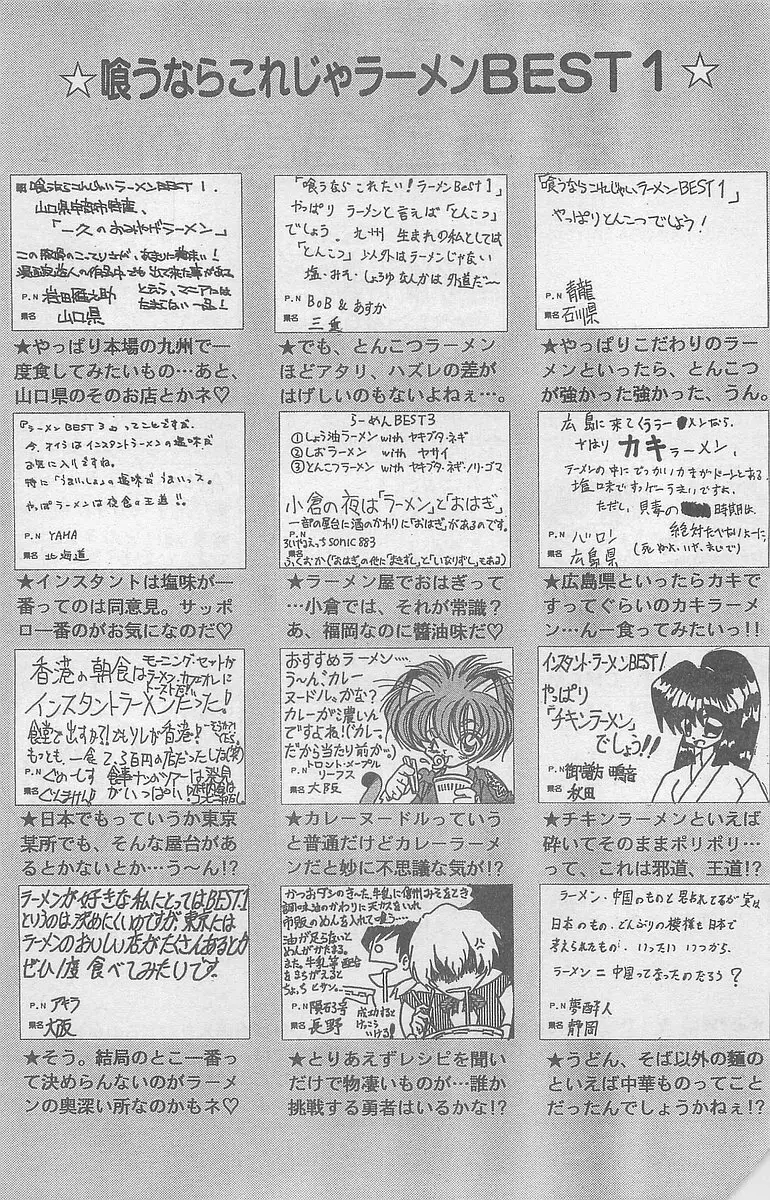 ☆喰うならこれじゃラーメンBEST1☆
喰うならこんじゃいラーメンBEST1.
山口県宇部市特産、
「一久のおみやげラーメン」
この豚骨のこってりさが、あまりに美味い!
の作品中でも出て来た事がある
とあっ、マニアには
たまらない一品!
P.N 岩田
県名 山口県
★やっぱり本場の九州で一
度食してみたいもの…あと、
山口県のそのお店とかネ♡
「喰うなら これたい!ラーメンBest1」
やっぱり ラーメンと言えば「とんこつ」
でしょう。九州 生まれの私としては
「とんこつ」以外はラーメンじゃない
塩・みそ・しょうゆなんかは外道だ〜
P.N BoB & あすか
県名 三重
★でも、とんこつラーメン
ほどアタリ、ハズレの差が
はげしいのもないよねぇ…。
「喰うならこれじゃいラーメンBEST1」
やっぱりとんこつでしょう!
P.N 青龍
県名 石川県
★やっぱりこだわりのラー
メンといったら、とんこつ
が強かった強かった、うん。
『ラーメンBEST3』ってことですが
今、オイラはインスタントラーメンの塩味が
お気に入りですね。
特に「うまいしょ」の塩味でうまいっス。
やっぱラーメンは夜食の王道!!
P.N YAMA
県名 北海道
★インスタントは塩味が一
番ってのは同意見。サッポ
ロ一番のがお気になのだ♡
らーめんBEST3
①しょう油ラーメン with ヤキブタ・ネギ
②しおラーメン with ヤサイ
③とんこつラーメン with ヤキブタ・ネギ・ノリ・ゴマ
小倉の夜は「ラーメン」と「おはぎ」
一部の屋台に酒のかわりに「おはぎ」があるのです。
P.N sonic 883
県名 ふくおか(「おはぎ」の他に「まきずし」と「いなりずし」もある)
★ラーメン屋でおはぎって
…小倉では、それが常識?
あ、福岡なのに醬油味だ♡
広島に来てくうラーメンなら、
やはり カキラーメン、
ラーメンの中にでっかいカキがドーンとある
塩味ですっげーうまいですよ。
ただし、貝毒の時期は
絶対たべないよーに。
P.N バロン
県名 広島県
★広島県といったらカキで
すってぐらいのカキラーメ
ン…ん一食ってみたいっ!!
香港の朝食は
モーニング・セットか
ラーメン・カフェオレに
トーストだ!!
インスタントラーメンだった!
食堂で出すか?!とりしが香港!
もっとも、一食 2、3百円の店だったしね(笑)
P.N ぐぬーしす
食事ナンバツアーは発見
がいっぱい!
★日本でもっていうか東京
某所でも、そんな屋台があ
るとかないとか…う〜ん!?
おすすめラーメン…
う〜ん、カレー
ヌードル。かな?
カレーが濃いん
ですよね!(カレー
だから当たり前か。)
P.N トロント・メープル
リーフス
県名 大阪
★カレーヌードルっていう
と普通だけどカレーラーメ
ンだと妙に不思議な気が!?
インスタント・ラーメンBEST1!
やっぱり
「チキンラーメン」
でしょう!!
P.N 御諏訪 鳴音
県名 秋田
★チキンラーメンといえば
砕いてそのままポリポリ…
って、これは邪道、王道!?
ラーメンが好きな私にとってはBEST.1
というのは決めにくいのですが、東京には
ラーメンのおいしい店がたくさんあるとか
ぜひ1度 食べてみたいです。
P.N アキラ
県名 大阪
★そう。結局のとこ一番っ
て決めらんないのがラーメ
ンの奥深い所なのかもネ♡
かつおダシのきーた、牛乳に信州みそをとき
調味油のかわりに天カスをいれ
市販のめんを入れて喰う…
油が足らないと
めんがかたまる。
また、牛乳等配合
をまちがえると
ちょっち ヒサン…。
P.N 隕石3号
県名 長野
成功すると
けっこう
いける!
★とりあえずレシピを聞い
だけで物凄いものが…誰か
挑戦する勇者はいるかな!?
ラーメン・中国のものと思われてるが実は
日本のもの、どんぶりの模様も日本で
考えられたもの、いったい いつから
ラーメン=中国って言ったのだろう?
P.N 夢酔人
県名 静岡
★うどん、そば以外の麺の
といえば中華ものってこと
だったんでしょうかねぇ!?